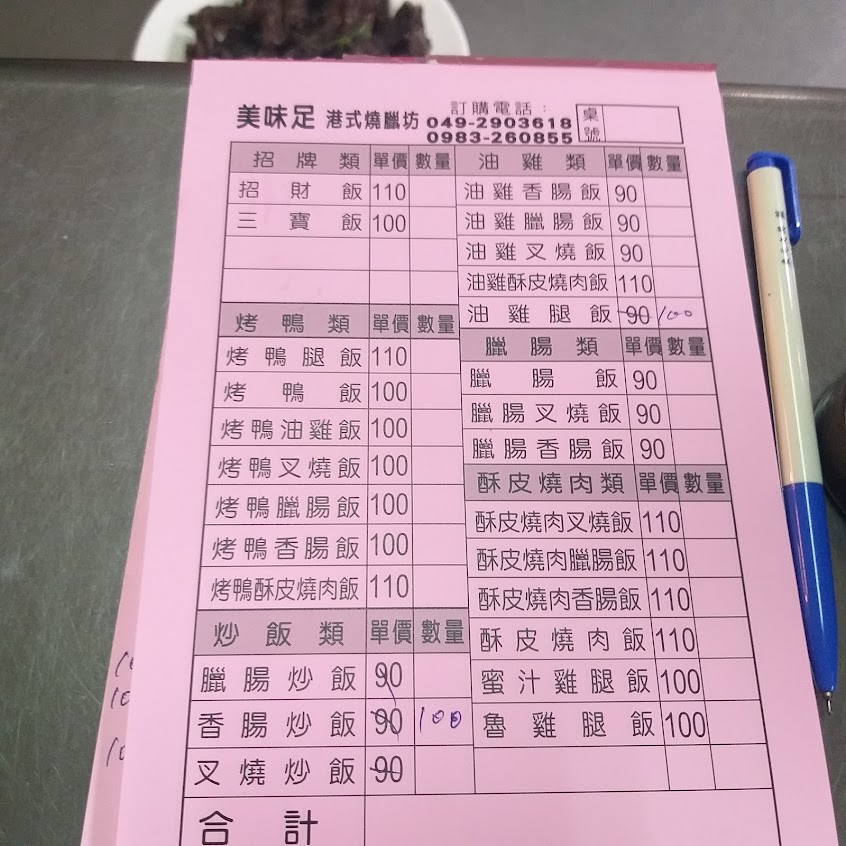 美味足 港式燒臘坊
訂購電話：
049-2903618
0983-260855
桌號
招牌類 單價 數量
招財飯 110
三寶飯 100
烤鴨類 單價 數量
烤鴨腿飯 110
烤鴨飯 100
烤鴨油雞飯 100
烤鴨叉燒飯 100
烤鴨臘腸飯 100
烤鴨香腸飯 100
烤鴨酥皮燒肉飯 110
炒飯類 單價 數量
臘腸炒飯 90
香腸炒飯 90 100
叉燒炒飯 90
合計
油雞類 單價 數量
油雞香腸飯 90
油雞臘腸飯 90
油雞叉燒飯 90
油雞酥皮燒肉飯 110
油雞腿飯 90 100
臘腸類 單價 數量
臘腸飯 90
臘腸叉燒飯 90
臘腸香腸飯 90
酥皮燒肉類 單價 數量
酥皮燒肉叉燒飯 110
酥皮燒肉臘腸飯 110
酥皮燒肉香腸飯 110
酥皮燒肉飯 110
蜜汁雞腿飯 100
魯雞腿飯 100